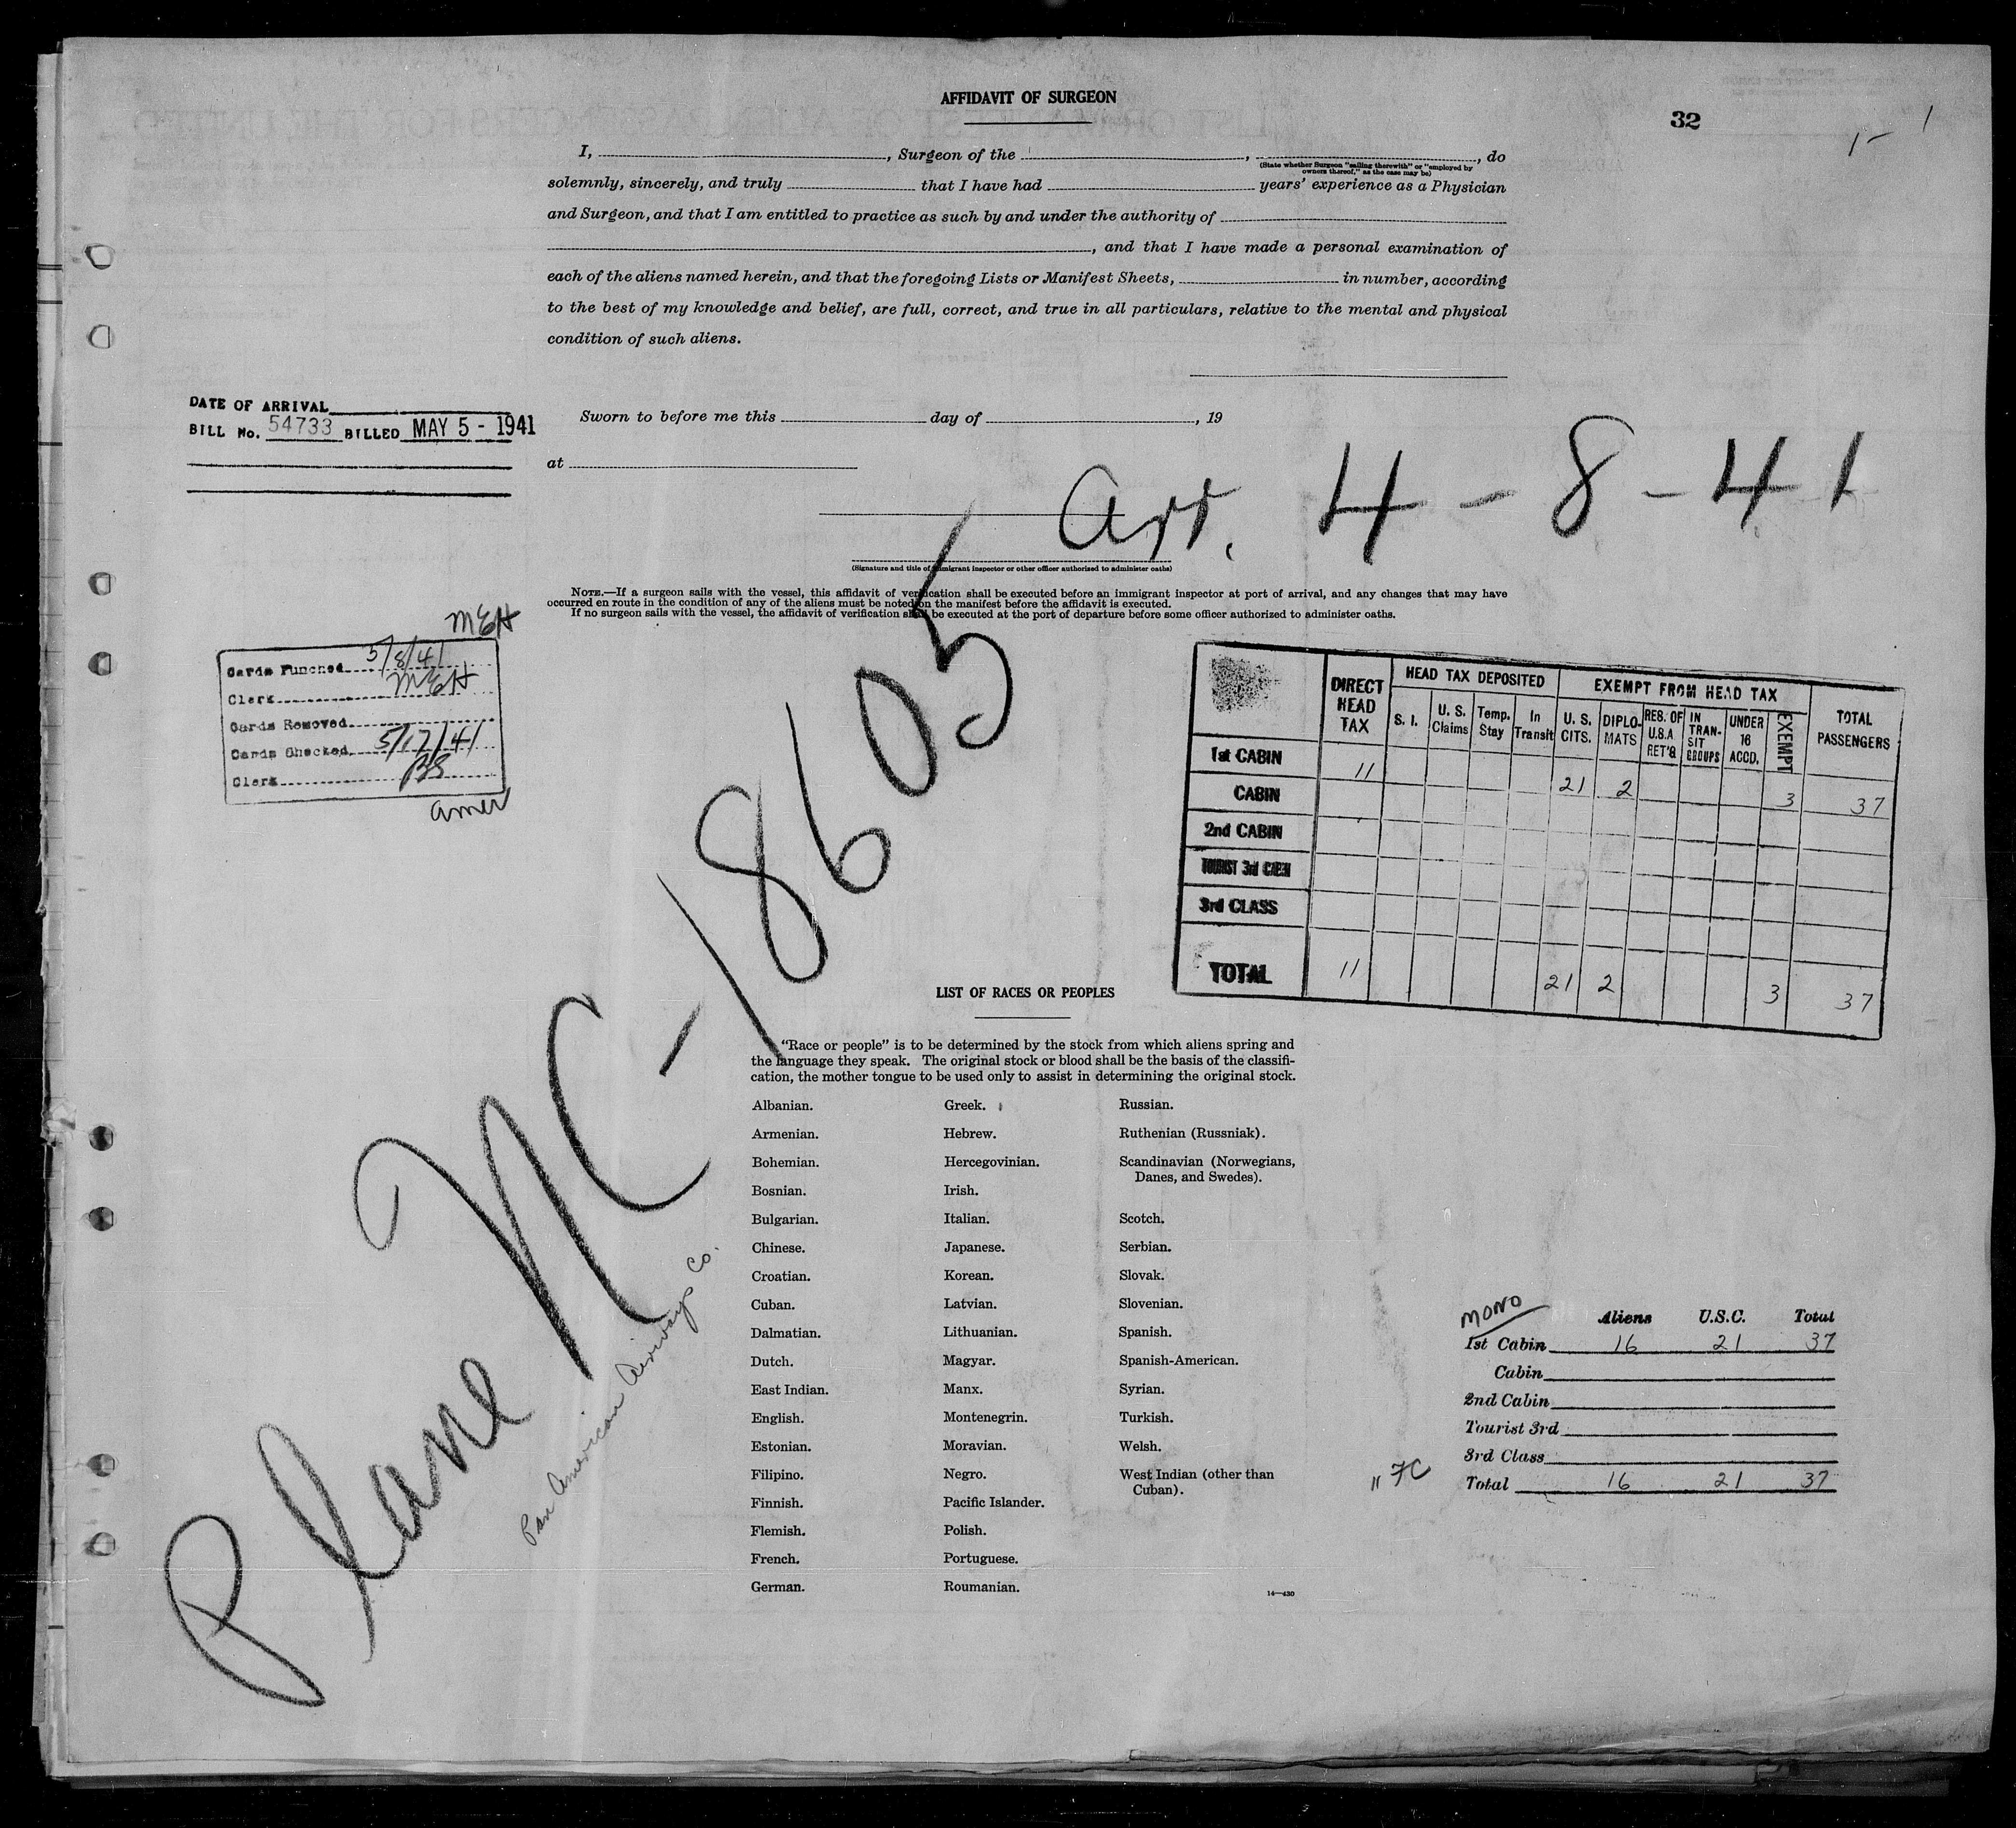 AFFIDAVIT OF SURGEON
32
1- 1
I, , Surgeon of the , , do
(State whether Surgeon "sailing therewith" or "employed by
owners thereof," as the case may be)
solemnly, sincerely, and truly that I have had years' experience as a Physician
and Surgeon, and that I am entitled to practice as such by and under the authority of
, and that I have made a personal examination of
each of the aliens named herein, and that the foregoing Lists or Manifest Sheets, in number, according
to the best of my knowledge and belief, are full, correct, and true in all particulars, relative to the mental and physical
condition of such aliens.
DATE OF ARRIVAL
BILL No. 54733 BILLED MAY 5 - 1941
Sworn to before me this day of , 19
at
Arr. 4-8-41
(Signature and title of immigrant inspector or other officer authorized to administer oaths)
NOTE.—If a surgeon sails with the vessel, this affidavit of verification shall be executed before an immigrant inspector at port of arrival, and any changes that may have
occurred en route in the condition of any of the aliens must be noted on the manifest before the affidavit is executed.
If no surgeon sails with the vessel, the affidavit of verification shall be executed at the port of departure before some officer authorized to administer oaths.
MEH
Cards Punched 5/8/41
Clerk MEH
Cards Removed
Cards Checked 5/17/41
Clerk
amer
DIRECT HEAD TAX
HEAD TAX DEPOSITED
EXEMPT FROM HEAD TAX
TOTAL PASSENGERS
S. I.
U. S. Claims
Temp. Stay
In Transit
U. S. CITS.
DIPLOMATS
RES. OF U.S.A. RET'G
IN TRANSIT GROUPS
UNDER 16 ACCD.
EXEMPT
1st CABIN 11 21 2 3 37
CABIN
2nd CABIN
TOURIST 3rd CABIN
3rd CLASS
TOTAL 11 21 2 3 37
Plane NC-18605
Pan American Airways Co.
LIST OF RACES OR PEOPLES
"Race or people" is to be determined by the stock from which aliens spring and
the language they speak. The original stock or blood shall be the basis of the classifi-
cation, the mother tongue to be used only to assist in determining the original stock.
Albanian.
Armenian.
Bohemian.
Bosnian.
Bulgarian.
Chinese.
Croatian.
Cuban.
Dalmatian.
Dutch.
East Indian.
English.
Estonian.
Filipino.
Finnish.
Flemish.
French.
German.
Greek.
Hebrew.
Hercegovinian.
Irish.
Italian.
Japanese.
Korean.
Latvian.
Lithuanian.
Magyar.
Manx.
Montenegrin.
Moravian.
Negro.
Pacific Islander.
Polish.
Portuguese.
Roumanian.
Russian.
Ruthenian (Russniak).
Scandinavian (Norwegians,
Danes, and Swedes).
Scotch.
Serbian.
Slovak.
Slovenian.
Spanish.
Spanish-American.
Syrian.
Turkish.
Welsh.
West Indian (other than
Cuban).
14—430
MONO
Aliens U.S.C. Total
1st Cabin 16 21 37
Cabin
2nd Cabin
Tourist 3rd
3rd Class
Total 16 21 37